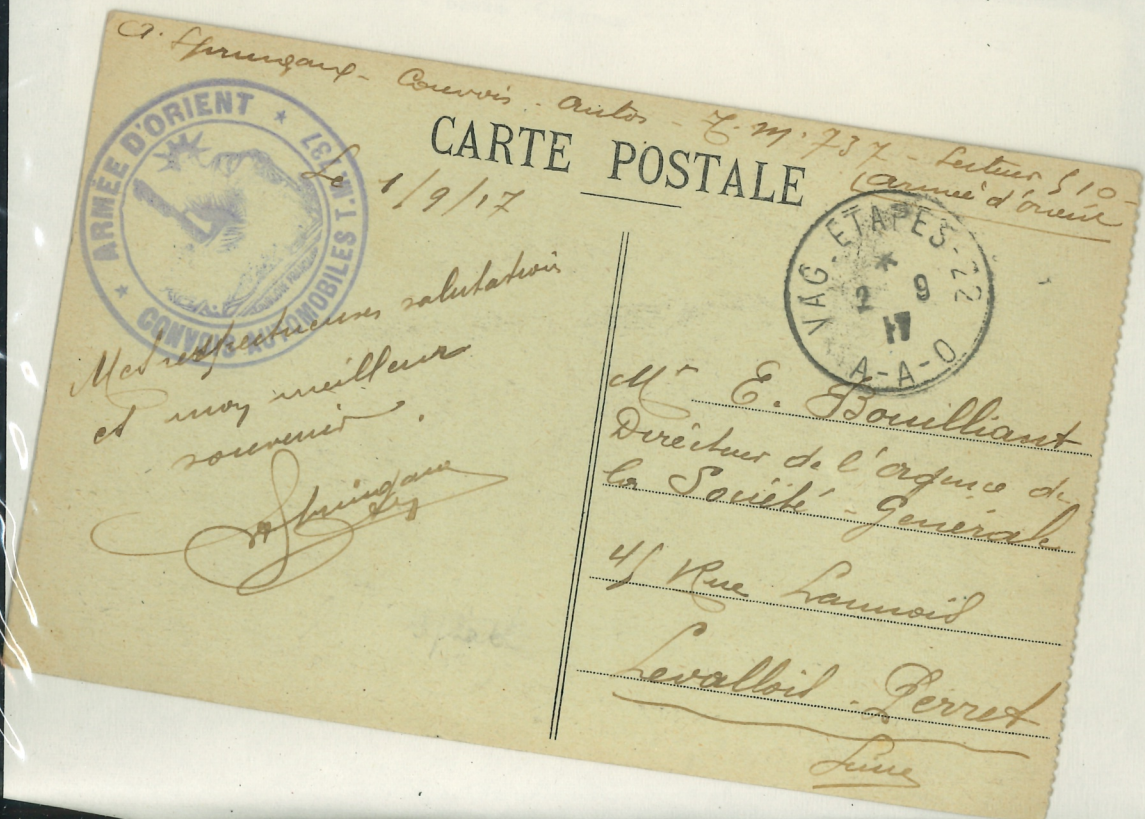 A. - Convois - autos - T. M. 737 - Secteur 510 -
(armée d'orient
CARTE POSTALE
★ ARMÉE D'ORIENT ★
CONVOIS AUTOMOBILES T.M. 737
Le 1/9/17
Mes respectueuses salutations
et mon meilleur
souvenir.
VAG. ETAPES-22
* 2 9
17
A-A-O
Mr E. Bouilliant
Directeur de l'agence de
la Société-Générale
Rue Lannois
Levallois-Perret
Seine